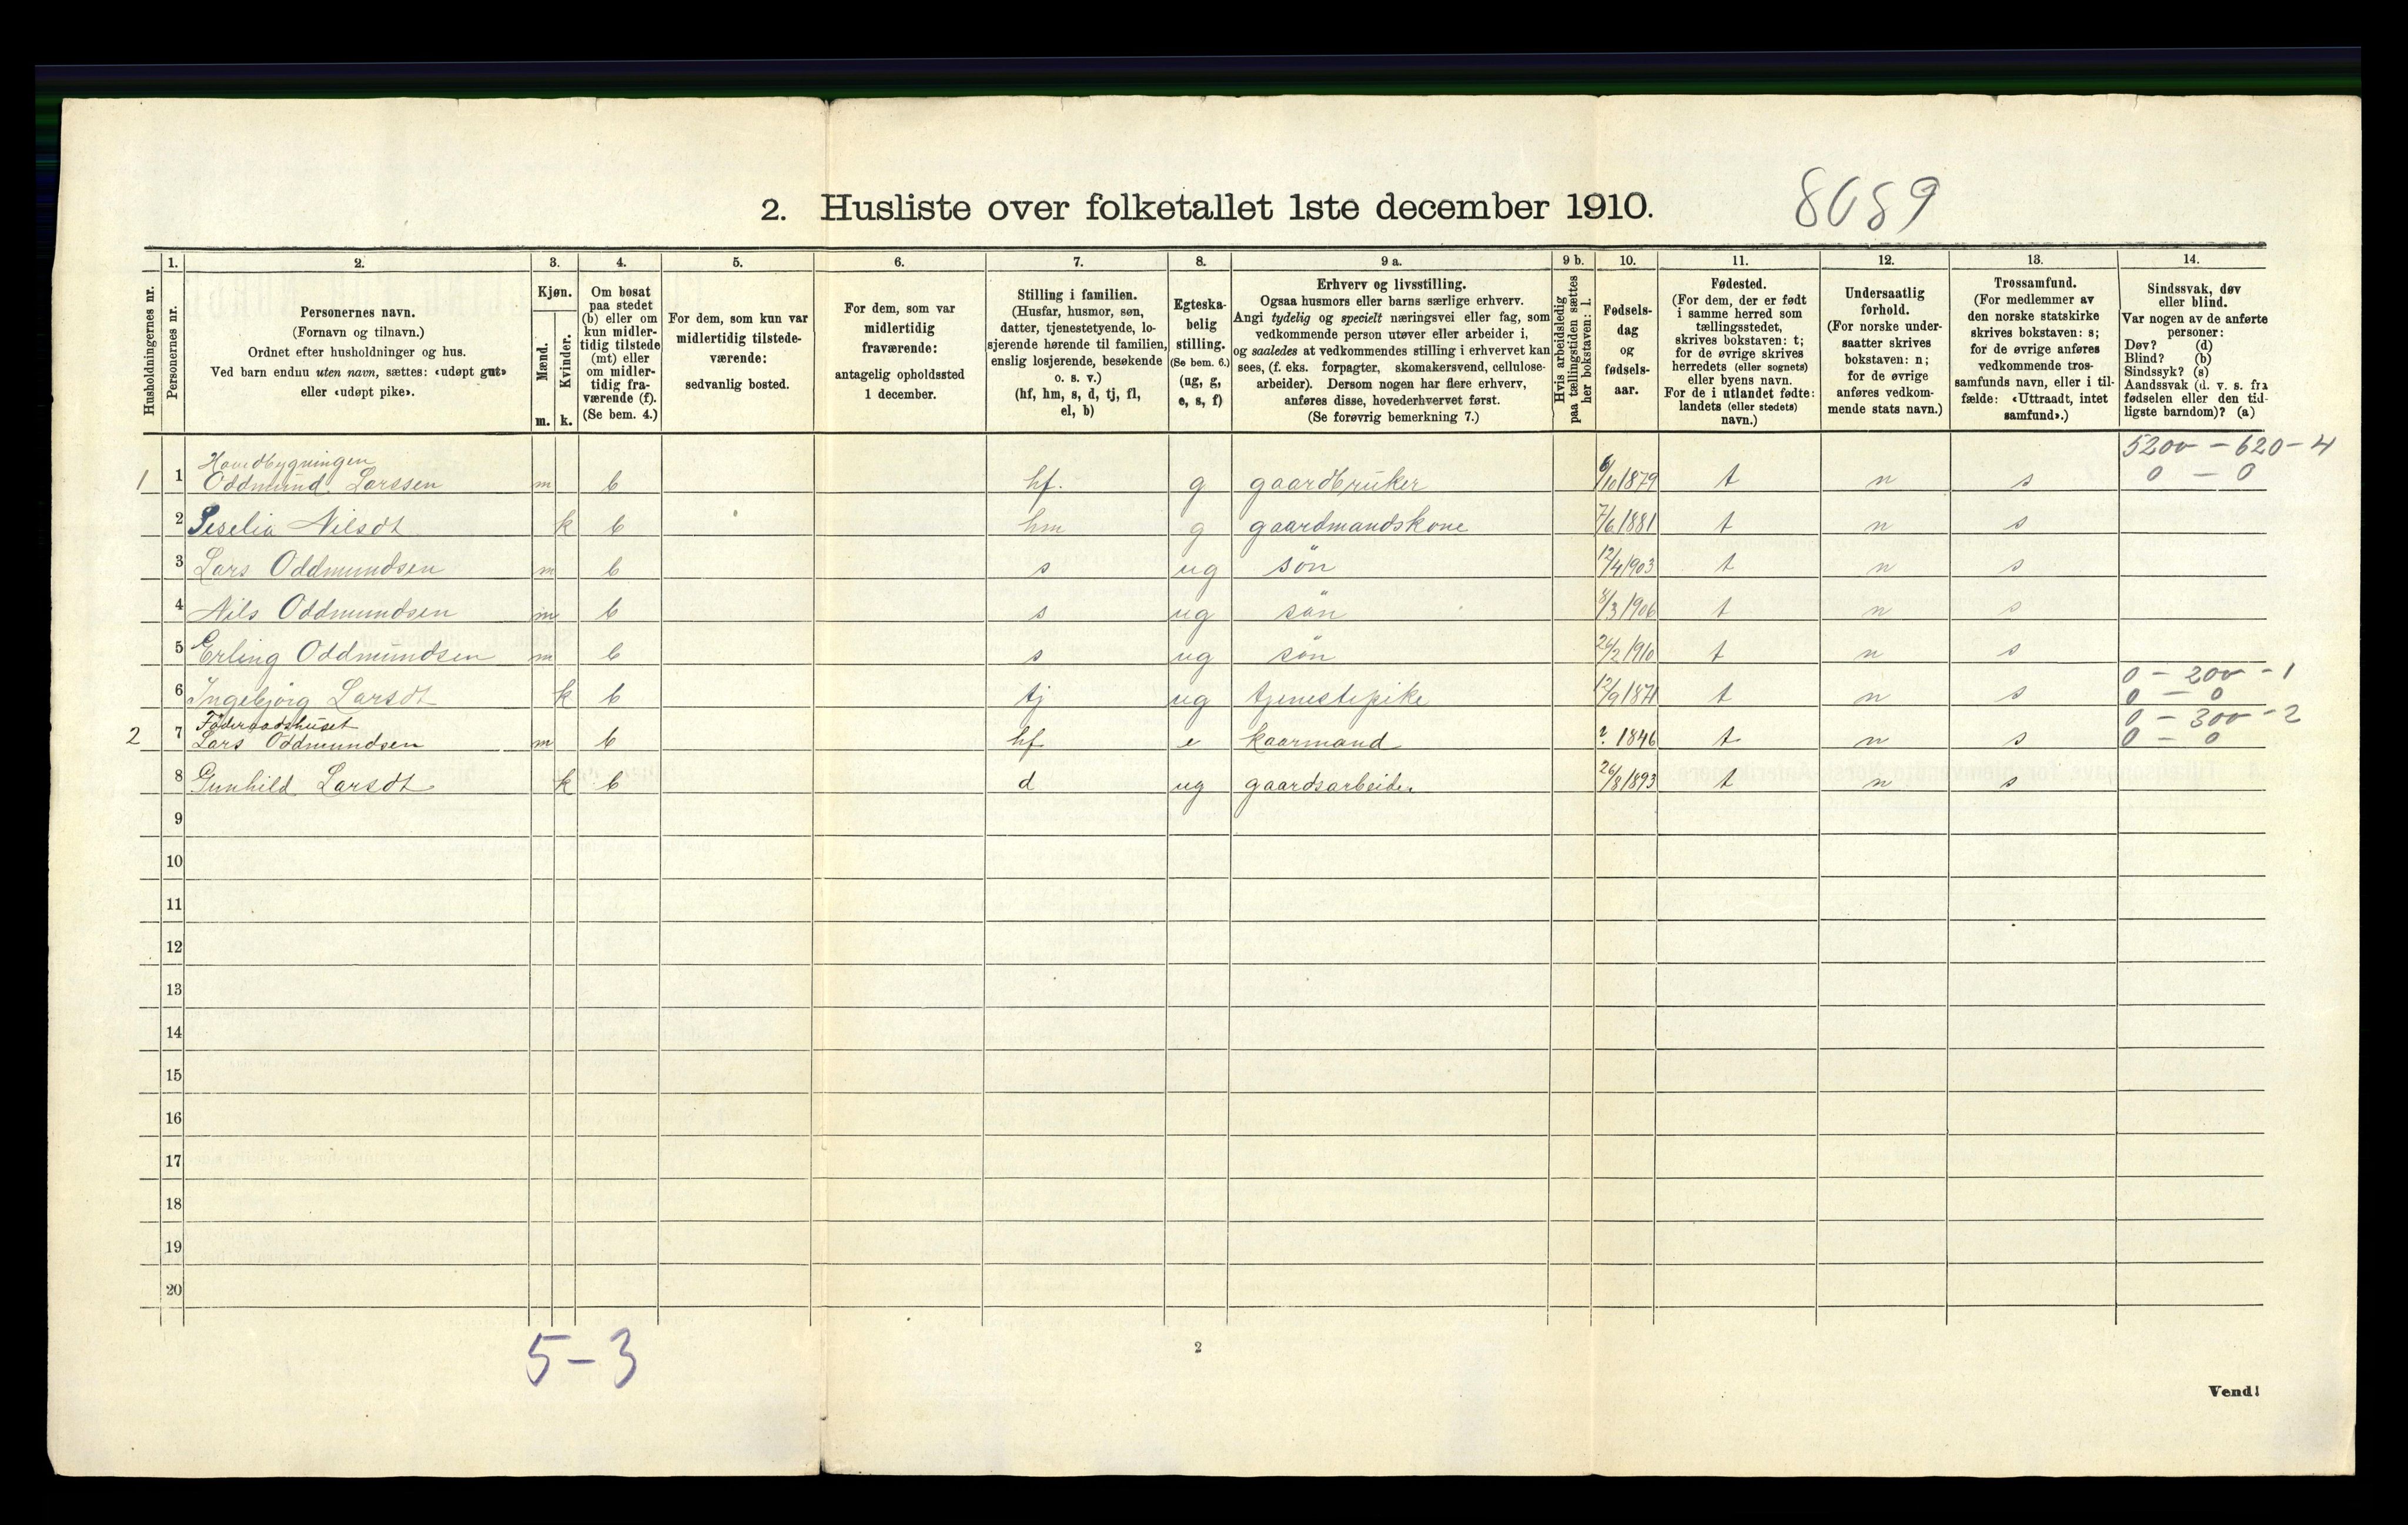 2. Husliste over folketallet 1ste december 1910.
8689
Husholdningernes nr.
1.
Personernes nr.
2.
Personernes navn.
(Fornavn og tilnavn.)
Ordnet efter husholdninger og hus.
Ved barn endnu uten navn, sættes: «udøpt gut»
eller «udøpt pike».
3.
Kjøn.
Mænd.
Kvinder.
m. k.
4.
Om bosat
paa stedet
(b) eller om
kun midler-
tidig tilstede
(mt) eller
om midler-
tidig fra-
værende (f).
(Se bem. 4.)
5.
For dem, som kun var
midlertidig tilstede-
værende:
sedvanlig bosted.
6.
For dem, som var
midlertidig
fraværende:
antagelig opholdssted
1 december.
7.
Stilling i familien.
(Husfar, husmor, søn,
datter, tjenestetyende, lo-
sjerende hørende til familien,
enslig losjerende, besøkende
o. s. v.)
(hf, hm, s, d, tj, fl,
el, b)
8.
Egteska-
belig
stilling.
(Se bem. 6.)
(ug, g,
e, s, f)
9 a.
Erhverv og livsstilling.
Ogsaa husmors eller barns særlige erhverv.
Angi tydelig og specielt næringsvei eller fag, som
vedkommende person utøver eller arbeider i,
og saaledes at vedkommendes stilling i erhvervet kan
sees, (f. eks. forpagter, skomakersvend, cellulose-
arbeider). Dersom nogen har flere erhverv,
anføres disse, hovederhvervet først.
(Se forøvrig bemerkning 7.)
9 b.
Hvis arbeidsledig
paa tællingstiden sættes
her bokstaven: l.
10.
Fødsels-
dag
og
fødsels-
aar.
11.
Fødested.
(For dem, der er født
i samme herred som
tællingsstedet,
skrives bokstaven: t;
for de øvrige skrives
herredets (eller sognets)
eller byens navn.
For de i utlandet fødte:
landets (eller stedets)
navn.)
12.
Undersaatlig
forhold.
(For norske under-
saatter skrives
bokstaven: n;
for de øvrige
anføres vedkom-
mende stats navn.)
13.
Trossamfund.
(For medlemmer av
den norske statskirke
skrives bokstaven: s;
for de øvrige anføres
vedkommende tros-
samfunds navn, eller i til-
fælde: «Uttraadt, intet
samfund».)
14.
Sindssvak, døv
eller blind.
Var nogen av de anførte
personer:
Døv? (d)
Blind? (b)
Sindssyk? (s)
Aandssvak (d. v. s. fra
fødselen eller den tid-
ligste barndom)? (a)
Hovedbygningen 5200 - 620 - 4
1 1 Oddmund Larssen m b hf. g gaardbruker 6/10 1879 t n s 0 - 0
2 Seselia Nilsdt k b hm g gaardmandskone 7/6 1881 t n s
3 Lars Oddmundsen m b s ug søn 12/4 1903 t n s
4 Nils Oddmundsen m b s ug søn 8/3 1906 t n s
5 Erling Oddmundsen m b s ug søn 26/2 1910 t n s
0 - 200 - 1
6 Ingebjørg Larsdt k b tj ug tjenestepike 12/9 1871 t n s 0 - 0
Føderaadshuset 0 - 300 - 2
2 7 Lars Oddmundsen m b hf e kaarmand ?. 1846 t n s 0 - 0
8 Gunhild Larsdt k b d ug gaardsarbeider 26/8 1893 t n s
9
10
11
12
13
14
15
16
17
18
19
20
5 - 3
2
Vend!